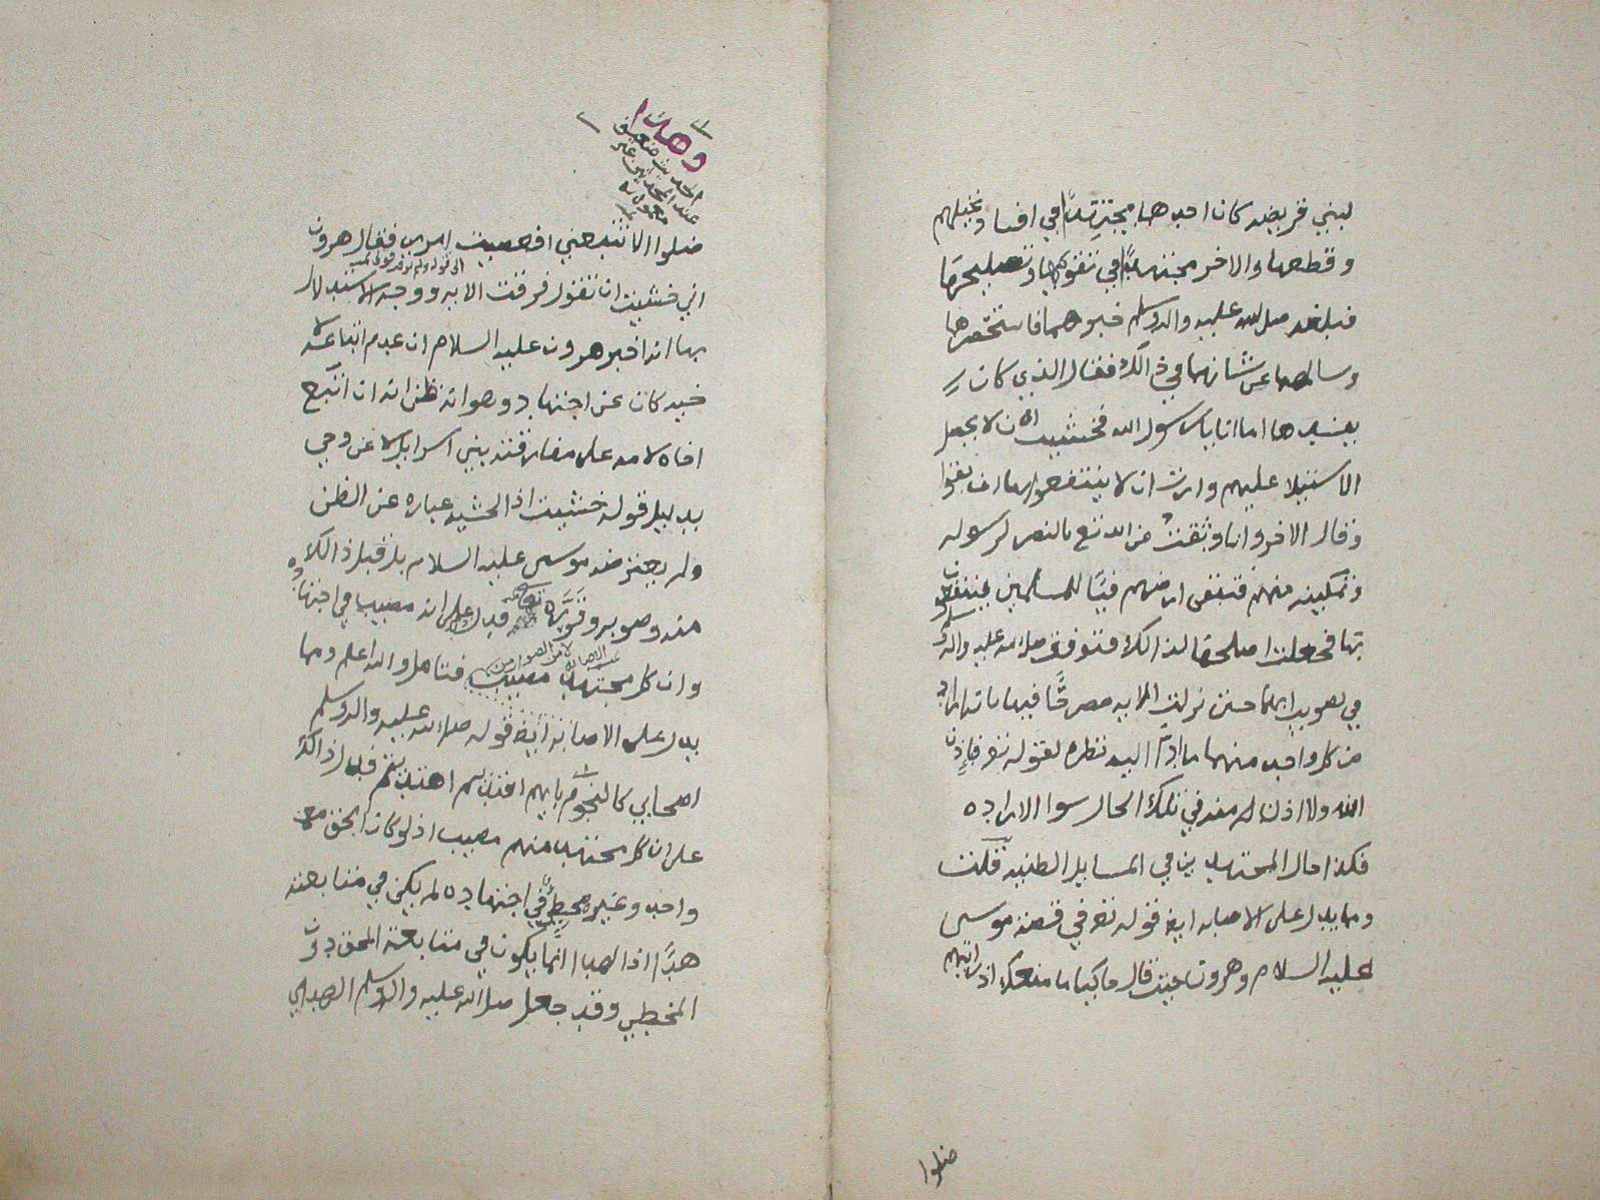 لبني قريضه كان احدهما مجتهدًا في افسا ونخيلهم
وقطعها والاخر مجتهدًا في تقويمها وتصليحها
فبلغه صلى الله عليه واله وسلم خبرهما فاستحضرهما
وسالهما عن شانهما في ذالك فقال الذي كان
يفسدها اما انا يا رسول الله فخشيت ان لا يحصل
الاستيلا عليهم واردت ان لا ينتفعوا بها ان بقوا
وقال الاخر وانا وثقت من الله تع بالنصر لرسوله
وتمكينه منهم فتبقى ارضهم فيئا للمسلمين ينتفعون
بها فجعلت اصلحها لذالك فتوقف صلى الله عليه واله وسلم
في تصويب ايهما حتى نزلت الايه مصرحًا فيها بانه اراد
من كل واحد منهما ما ادى اليه نظره لقوله تع فباذن
الله ولا اذن له منه في تلك الحال سوا الاراده
فكذا حال المجتهدين في المسايل الظنيه قلت
ومما يدل على الاصابه ايض قوله تع في قصة موسى
عليه السلام وهرون حيث قال حاكيا ما منعك اذ رايتهم
ضلوا
وهذا
الحديث ضعيف
عند المحدثين غير
معمول به
ضلوا الا تتبعني افعصيت امري فقال هرون
اني خشيت ان تقول فرقت الايه ووجه الاستدلال
الى قوله ولم ترقب قولي
بها انه اخبر هرون عليه السلام ان عدم اتباعه لا
خيه كان عن اجتهاد وهو انه ظن انه ان اتبع
اخاه لامه على مفارقته بني اسرايل لا عن وحي
بدليل قوله خشيت اذ الخشيه عباره عن الظن
ولم يعترضه موسى عليه السلام بل قبل ذالك
منه وصوبه وقرره تع فدل على انه مصيب في اجتهاده
وان كل مجتهد مصيب فتامل والله اعلم ومما
يدل على الاصابة ايض قوله صلى الله عليه واله وسلم
اصحابي كالنجوم بايهم اقتديتم اهتديتم فدل ذالك
على ان كل مجتهد منهم مصيب اذ لو كان الحق مع
واحد وغيره مخطي في اجتهاده لم يكن في متابعته
هدًا اذ الهدا انما يكون في متابعة المحق دون
المخطي وقد جعل صلى الله عليه واله وسلم الهدا في